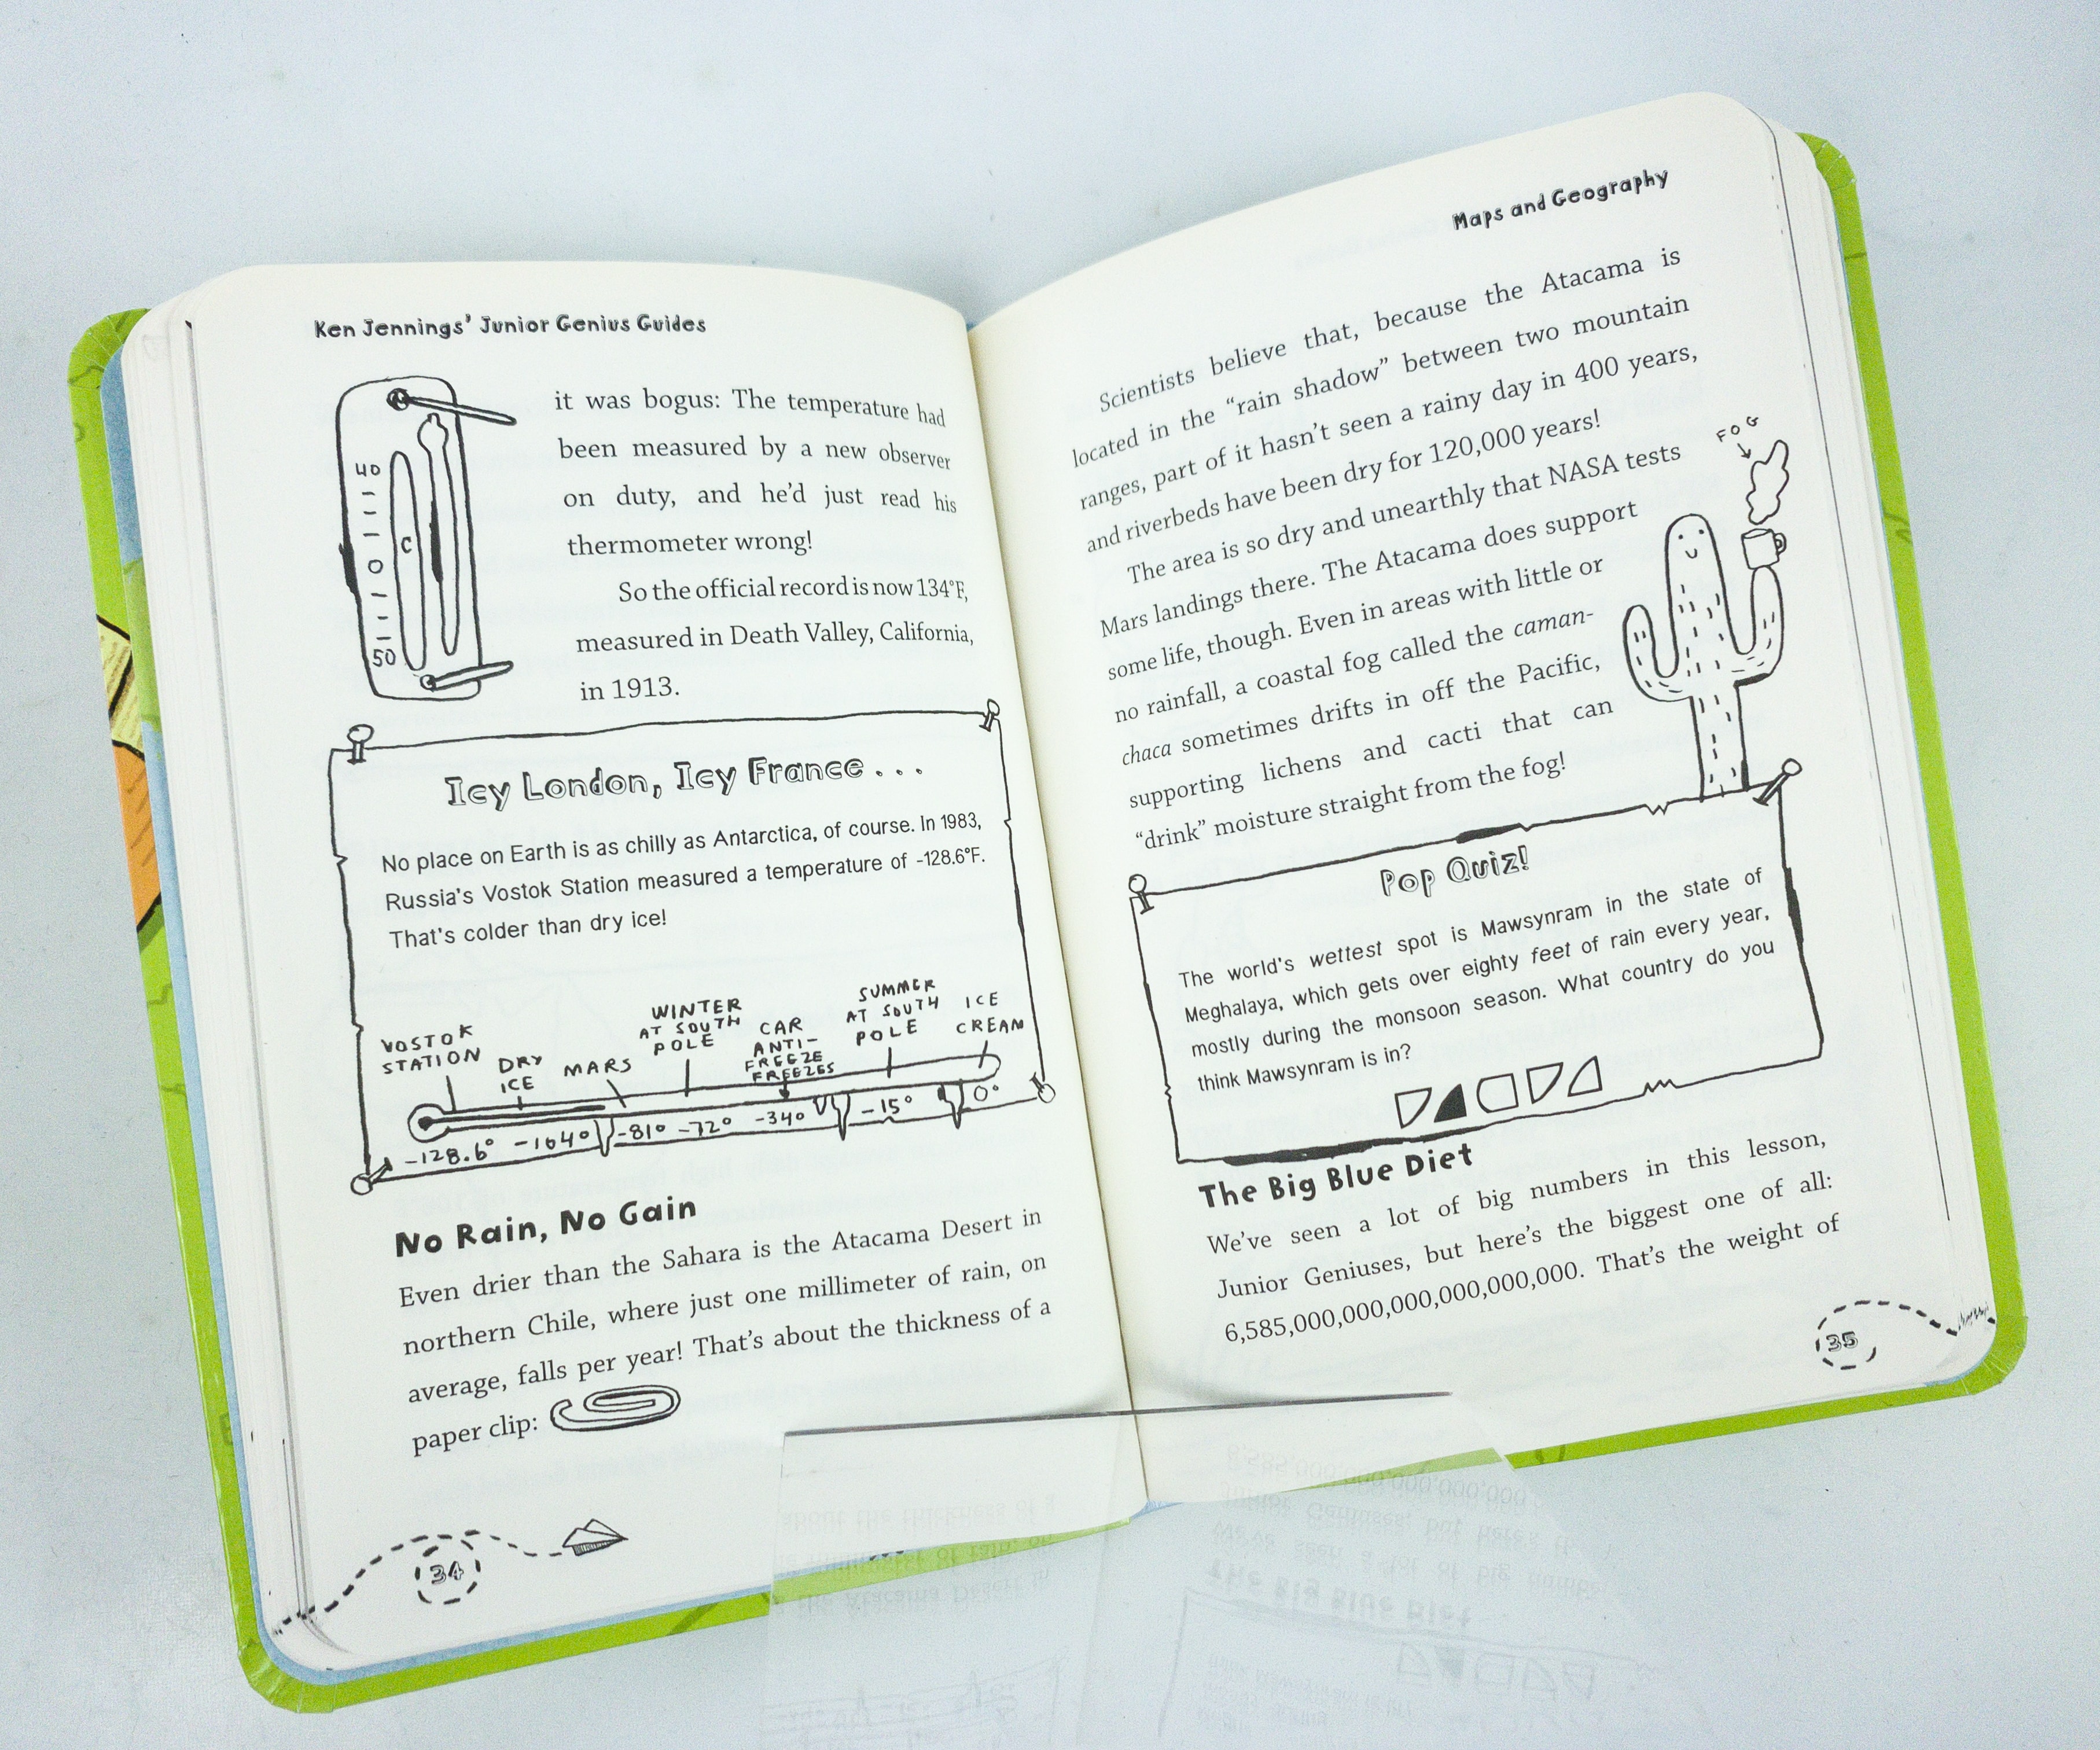 Ken Jennings' Junior Genius Guides
40
C
0
50
it was bogus: The temperature had
been measured by a new observer
on duty, and he'd just read his
thermometer wrong!
So the official record is now 134°F,
measured in Death Valley, California,
in 1913.
Icy London, Icy France . . .
No place on Earth is as chilly as Antarctica, of course. In 1983,
Russia's Vostok Station measured a temperature of -128.6°F.
That's colder than dry ice!
VOSTOK
STATION
DRY
ICE
MARS
WINTER
AT SOUTH
POLE
CAR
ANTI-
FREEZE
FREEZES
SUMMER
AT SOUTH
POLE
ICE
CREAM
-128.6° -164° -81° -72° -34° -15° 0°
No Rain, No Gain
Even drier than the Sahara is the Atacama Desert in
northern Chile, where just one millimeter of rain, on
average, falls per year! That's about the thickness of a
paper clip:
34
Maps and Geography
Scientists believe that, because the Atacama is
located in the "rain shadow" between two mountain
ranges, part of it hasn't seen a rainy day in 400 years,
and riverbeds have been dry for 120,000 years!
The area is so dry and unearthly that NASA tests
Mars landings there. The Atacama does support
some life, though. Even in areas with little or
no rainfall, a coastal fog called the caman-
chaca sometimes drifts in off the Pacific,
supporting lichens and cacti that can
"drink" moisture straight from the fog!
FOG
Pop Quiz!
The world's wettest spot is Mawsynram in the state of
Meghalaya, which gets over eighty feet of rain every year,
mostly during the monsoon season. What country do you
think Mawsynram is in?
The Big Blue Diet
We've seen a lot of big numbers in this lesson,
Junior Geniuses, but here's the biggest one of all:
6,585,000,000,000,000,000,000. That's the weight of
35